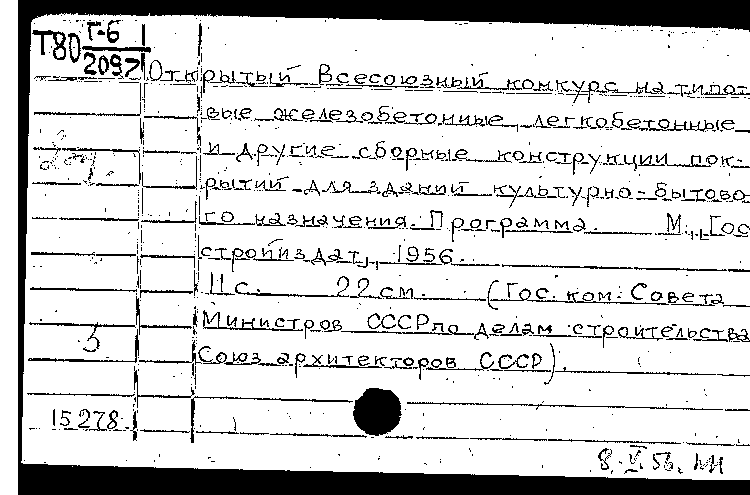 Т80 Г-6
2097
Открытый Всесоюзный конкурс на типов
вые железобетонные, легкобетонные
и другие сборные конструкции пок-
рытий для зданий культурно-бытово
го назначения. Программа. М., Гос
стройиздат, 1956.
11 с. 22 см. (Гос. ком. Совета
Министров СССР по делам строительства
Союз архитекторов СССР).
15278
8.V.56.